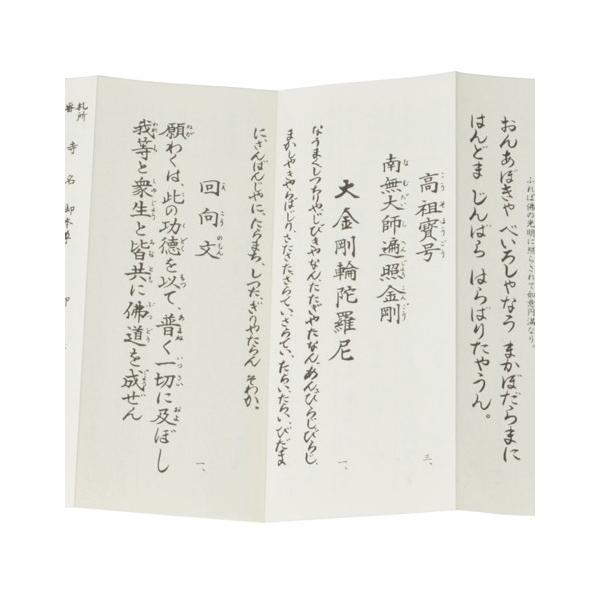 ふれば佛の光明に照らされて如意円満なり。
おんあぼきゃ べいろしゃなう まかぼだらまに
はんどま じんばら はらばりたやうん。
高祖寳号
南無大師遍照金剛
三、
大金剛輪陀羅尼
一、
なうまくしつちりやじびきやなんたたぎやたなんあんびらじびらじ
まかしやきやらばじりさださたさらていさらていたらいたらいびだま
に、さんばんじやに、たらまち、しつだ、ぎりやたらん そわか。
回向文
一、
願わくは、此の功徳を以て、普く一切に及ぼし
我等と衆生と皆共に佛道を成ぜん
札所
番 寺名